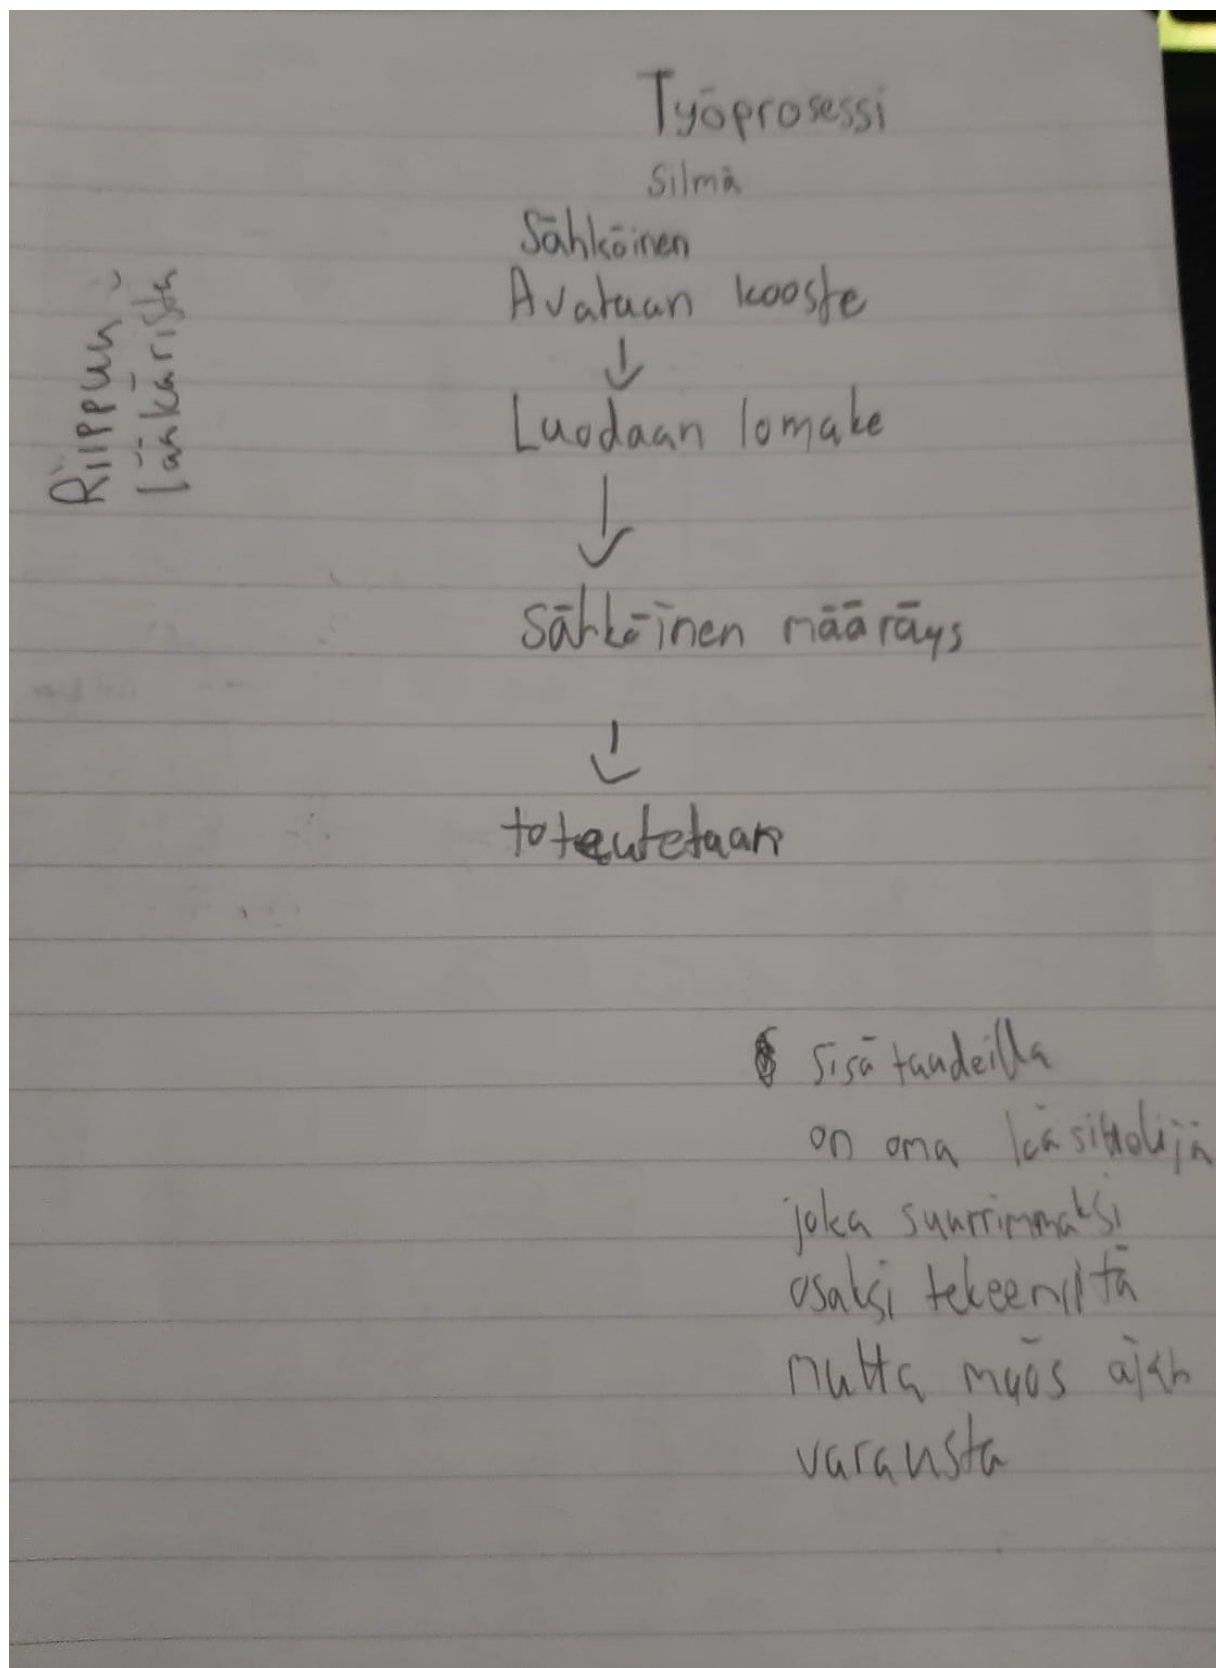 Työprosessi
Silmä
Sähköinen
Avataan kooste
↓
Luodaan lomake
↓
Sähköinen määräys
↓
toteutetaan
Riippuu
lääkäristä
sisätaudeilla
on oma käsittelijä
joka suurrimmaksi
osaksi tekee niitä
mutta myös ajan
varausta